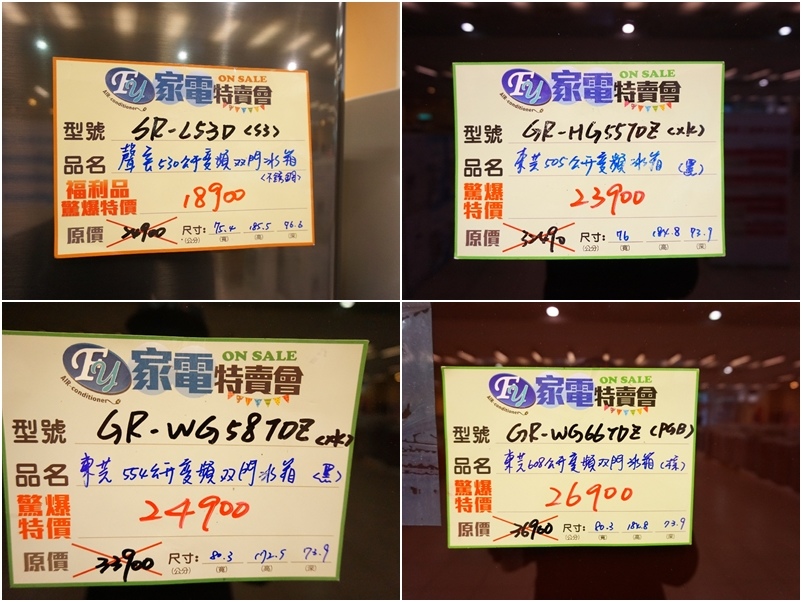 FU 家電特賣會 ON SALE
AIR-conditioner
型號 SR-L53D(S3)
品名 聲寶530公升變頻双門冰箱
(不銹鋼)
福利品
驚爆特價 18900
原價 尺寸: 75.4 185.5 96.6
(公分) (寬) (高) (深)
FU 家電特賣會 ON SALE
AIR-conditioner
型號 GR-HG55TDZ(XK)
品名 東芝505公升變頻冰箱(黑)
驚爆
特價 23900
原價 32490 尺寸: 76 184.8 93.9
(公分) (寬) (高) (深)
FU 家電特賣會 ON SALE
AIR-conditioner
型號 GR-WG58TDZ(XK)
品名 東芝554公升變頻双門冰箱(黑)
驚爆
特價 24900
原價 33900 尺寸: 80.3 172.5 73.9
(公分) (寬) (高) (深)
FU 家電特賣會 ON SALE
AIR-conditioner
型號 GR-WG66TDZ(PGB)
品名 東芝608公升變頻双門冰箱
驚爆
特價 26900
原價 36900 尺寸: 80.3 184.8 73.9
(公分) (寬) (高) (深)